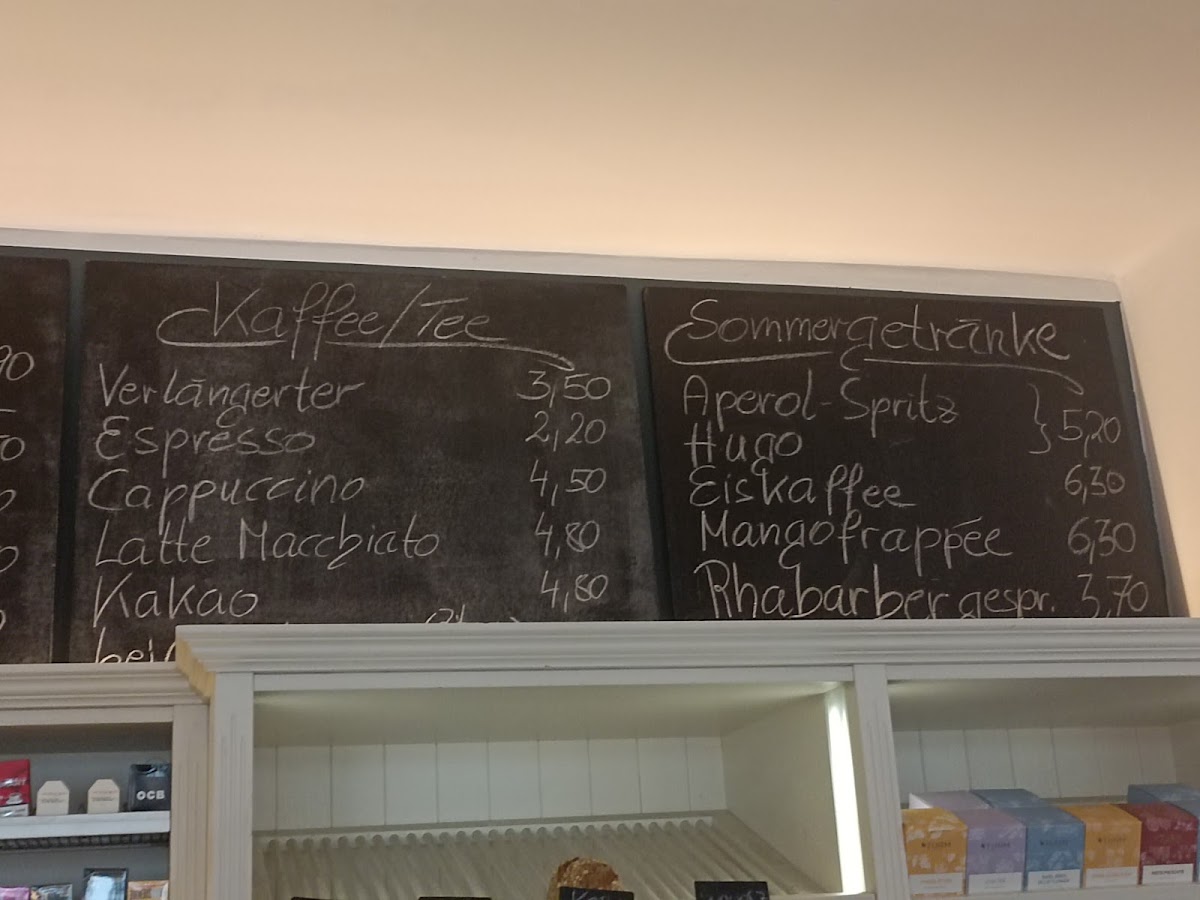 Kaffee/Tee
Verlängerter 3,50
Espresso 2,20
Cappuccino 4,50
Latte Macchiato 4,80
Kakao 4,80
Sommergetränke
Aperol-Spritz
Hugo } 5,20
Eiskaffee 6,30
Mangofrappée 6,30
Rhabarber gespr. 3,70
OCB